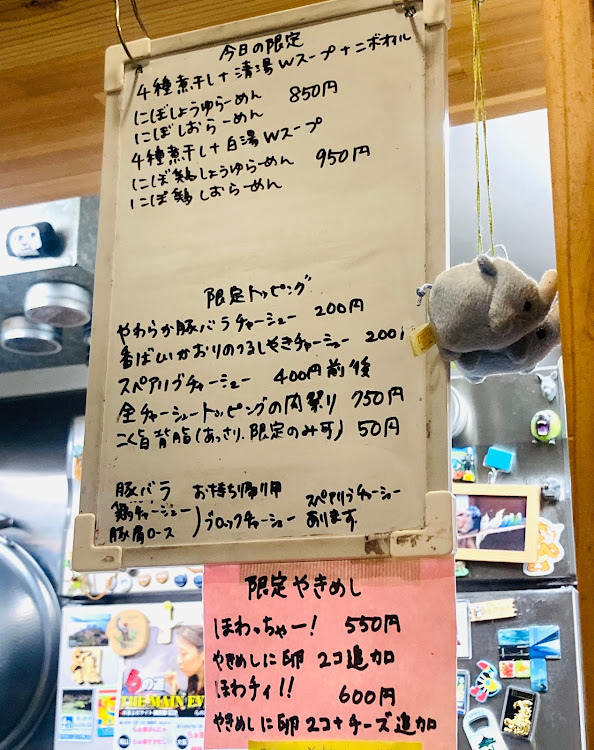 今日の限定
4種煮干し+清湯Wスープ+ニボオイル
にぼしょうゆらーめん 850円
にぼしおらーめん
4種煮干し+白湯Wスープ
にぼ鶏しょうゆらーめん 950円
にぼ鶏しおらーめん
限定トッピング
やわらか豚バラチャーシュー 200円
香ばしいかおりのつるしやきチャーシュー 200
スペアリブチャーシュー 400円前後
全チャーシュートッピングの肉祭り 750円
こく旨背脂(あっさり、限定のみ可) 50円
豚バラ お持ち帰り用
鶏チャーシュー スペアリブチャーシュー
豚肩ロース )ブロックチャーシュー あります
限定やきめし
ほわっちゃー! 550円
やきめしに卵 2コ追加
ほわチィ!! 600円
やきめしに卵2コ+チーズ追加
THE MAIN EV